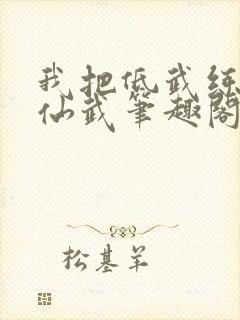 我把低武练
仙武笔趣阁
松基羊